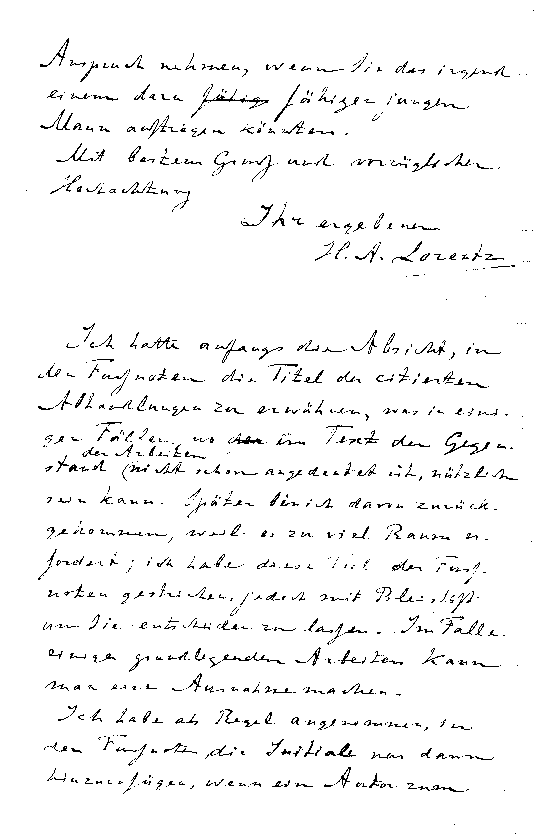 Anspruch nehmen, wenn Sie das irgend
einem dazu fähig fähigen jungen
Mann auftragen könnten.
Mit bestem Gruß und vorzüglicher
Hochachtung
Ihr ergebener
H. A. Lorentz
Ich hatte anfangs die Absicht, in
den Fußnoten die Titel der citierten
Abhandlungen zu erwähnen, was in eini-
gen Fällen, wo der im Text der Gegen-
der Arbeiten
stand nicht schon angedeutet ist, nützlich
sein kann. Später bin ich davon zurück-
gekommen, weil es zu viel Raum er-
fordert; ich habe diese Titel der Fuß-
noten gestrichen, jedoch mit Bleistift
um Sie entscheiden zu lassen. Im Falle
einiger grundlegenden Arbeiten kann
man eine Ausnahme machen.
Ich habe als Regel angenommen, in
den Fußnoten die Initiale nur dann
hinzuzufügen, wenn ein Autor zum